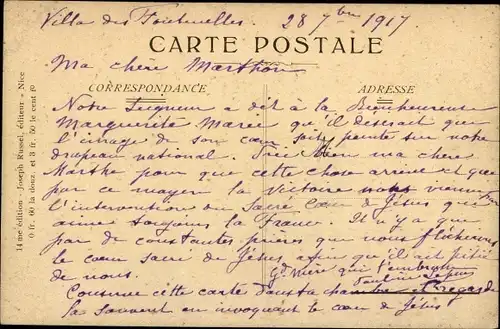 Villa des Fontenelles 28 7bre 1917
CARTE POSTALE
Ma chère Marthon
CORRESPONDANCE
ADRESSE
Notre Seigneur a dit à la Bienheureuse
Marguerite Marie qu'il désirait que
l'image de son cœur soit peinte sur notre
drapeau national. Prie bien ma chère
Marthe pour que cette chose arrive et que
par ce moyen la Victoire nous vienne
l'intervention du Sacré Cœur de Jésus qui
aime toujours la France. Il n'y a que
par de constantes prières que nous fléchirons
le cœur sacré de Jésus afin qu'il ait pitié
de nous. Gd Mère qui t'embrasse
Pauline
Conserve cette carte dans ta chambre et regarde
la souvent en invoquant le cœur de Jésus
14me édition - Joseph Russel, éditeur - Nice
0 fr. 60 la douz. et 3 fr. 50 le cent